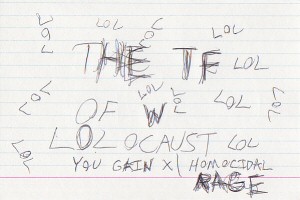 LOL LOL LOL LOL
THE TF LOL
LOL LOL LOL LOL LOL
OF W
LOL LOLOCAUST LOL
YOU GAIN X1 HOMOCIDAL
RAGE